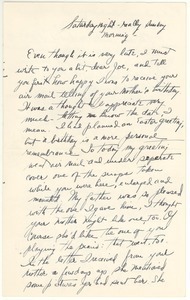 Saturday night - really Sunday
Morning!
Even though it is very late, I must
write to you a bit dear Joe, and tell
you just how happy I was to receive your
air mail telling of your Mother's birthday.
It was a thought I appreciate very
much - telling me know the date, I
mean. I had planned an Easter greeting,
but a birthday is a more personal
remembrance. So today my greeting
went air mail and under separate
cover one of the snaps taken
while you were here, enlarged and
mounted. My father was so pleased
with the one I gave him, I thought
your mother might like one, too.
'cause she'd like the one of you
playing the piano! that went too.
In the letter I received from your
mother a few days ago she mentioned
some pictures you had sent her. She